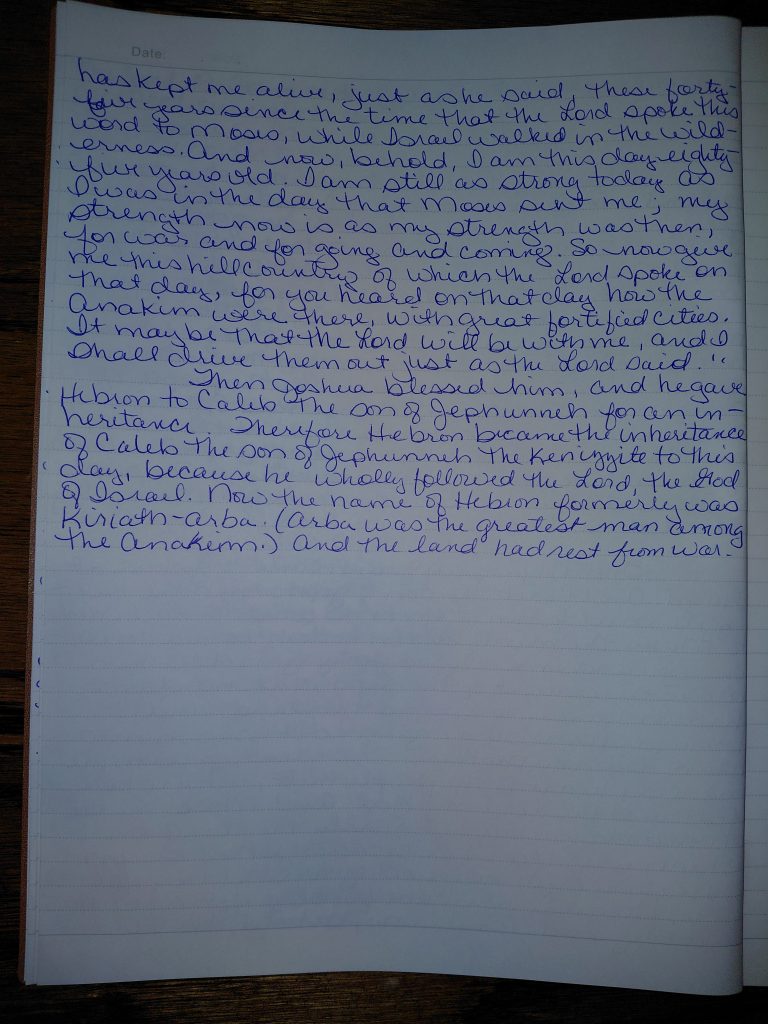 Date:
has kept me alive, just as he said, these forty-
five years since the time that the Lord spoke this
word to Moses, while Israel walked in the wild-
erness. And now, behold, I am this day eighty-
five years old. I am still as strong today as
I was in the day that Moses sent me; my
strength now is as my strength was then,
for war and for going and coming. So now give
me this hill country of which the Lord spoke on
that day, for you heard on that day how the
Anakim were there, with great fortified cities.
It may be that the Lord will be with me, and I
shall drive them out just as the Lord said."
Then Joshua blessed him, and he gave
Hebron to Caleb the son of Jephunneh for an in-
heritance. Therefore Hebron became the inheritance
of Caleb the son of Jephunneh the Kenizzite to this
day, because he wholly followed the Lord, the God
of Israel. Now the name of Hebron formerly was
Kiriath-arba. (Arba was the greatest man among
the Anakim.) And the land had rest from war.